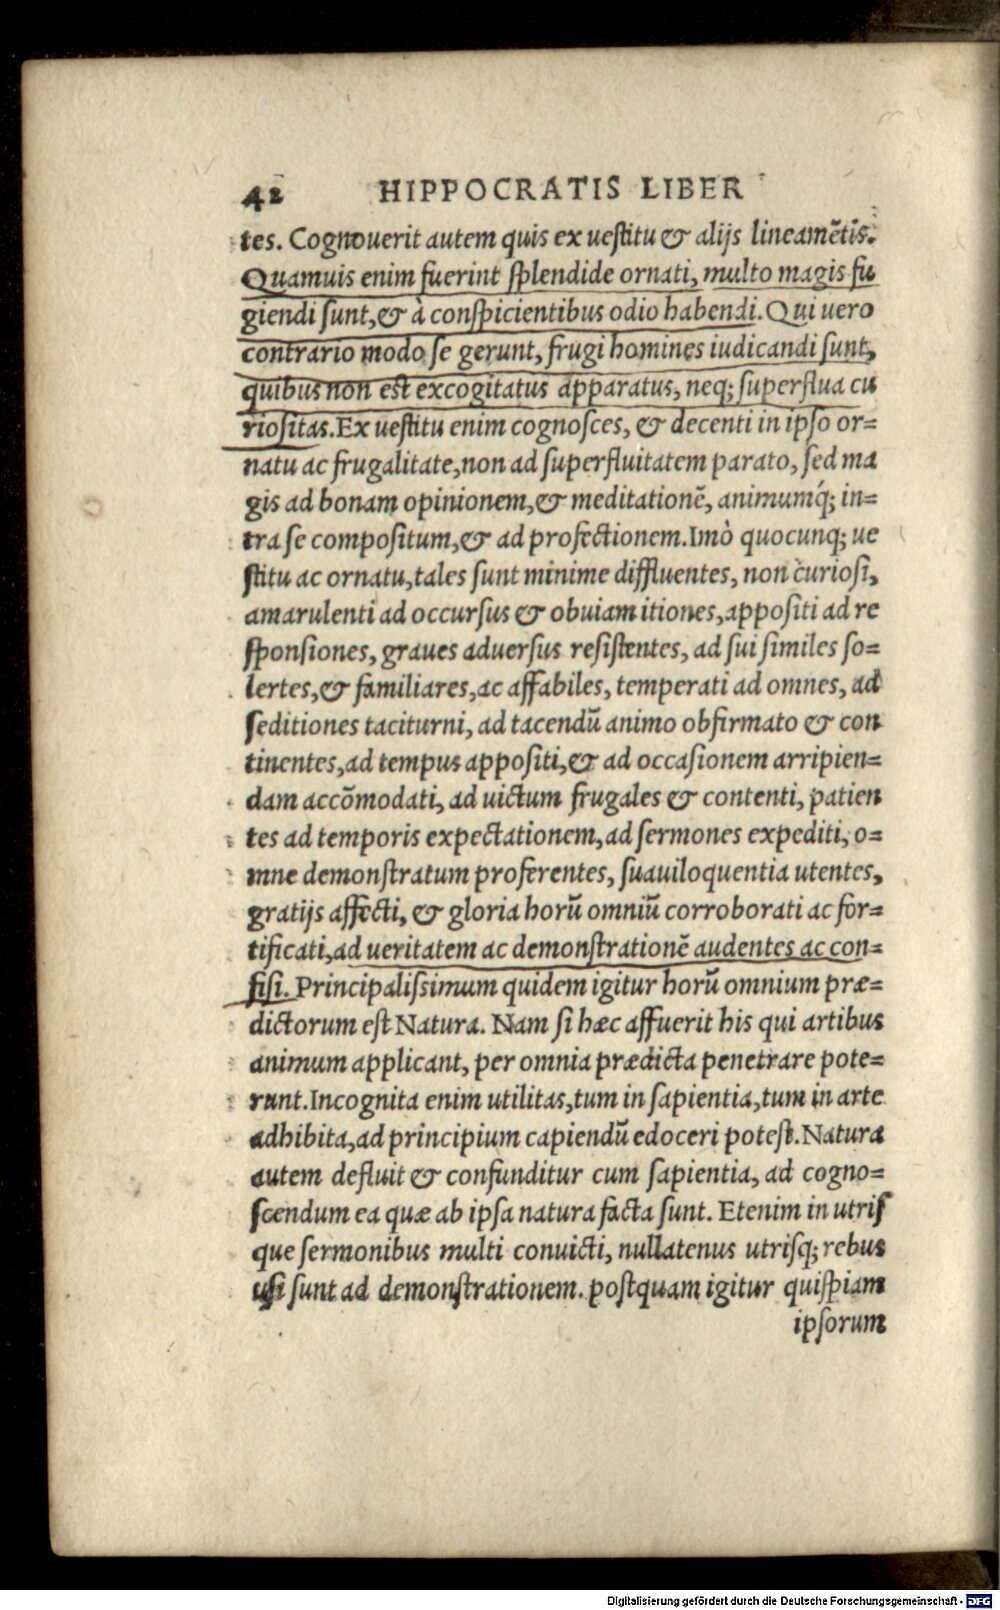 42 HIPPOCRATIS LIBER
tes. Cognouerit autem quis ex uestitu & alijs lineamētis.
Quamuis enim fuerint splendide ornati, multo magis fu
giendi sunt, & à conspicientibus odio habendi. Qui uero
contrario modo se gerunt, frugi homines iudicandi sunt,
quibus non est excogitatus apparatus, neq; superflua cu
riositas. Ex uestitu enim cognosces, & decenti in ipso or=
natu ac frugalitate, non ad superfluitatem parato, sed ma
gis ad bonam opinionem, & meditationē, animumq́; in=
tra se compositum, & ad profectionem. Imò quocunq; ue
stitu ac ornatu, tales sunt minime diffluentes, non curiosi,
amarulenti ad occursus & obuiam itiones, appositi ad re
sponsiones, graues aduersus resistentes, ad sui similes so=
lertes, & familiares, ac affabiles, temperati ad omnes, ad
seditiones taciturni, ad tacendū animo obfirmato & con
tinentes, ad tempus appositi, & ad occasionem arripien=
dam accōmodati, ad uictum frugales & contenti, patien
tes ad temporis expectationem, ad sermones expediti, o=
mne demonstratum proferentes, suauiloquentia utentes,
gratijs affecti, & gloria horū omniū corroborati ac for=
tificati, ad ueritatem ac demonstrationē audentes ac con=
fisi. Principalissimum quidem igitur horū omnium præ=
dictorum est Natura. Nam si hæc affuerit his qui artibus
animum applicant, per omnia prædicta penetrare pote=
runt. Incognita enim utilitas, tum in sapientia, tum in arte
adhibita, ad principium capiendū edoceri potest. Natura
autem defluit & confunditur cum sapientia, ad cogno=
scendum ea quæ ab ipsa natura facta sunt. Etenim in utris
que sermonibus multi conuicti, nullatenus utrisq; rebus
usi sunt ad demonstrationem. postquam igitur quispiam
ipsorum
Digitalisierung gefördert durch die Deutsche Forschungsgemeinschaft - DFG